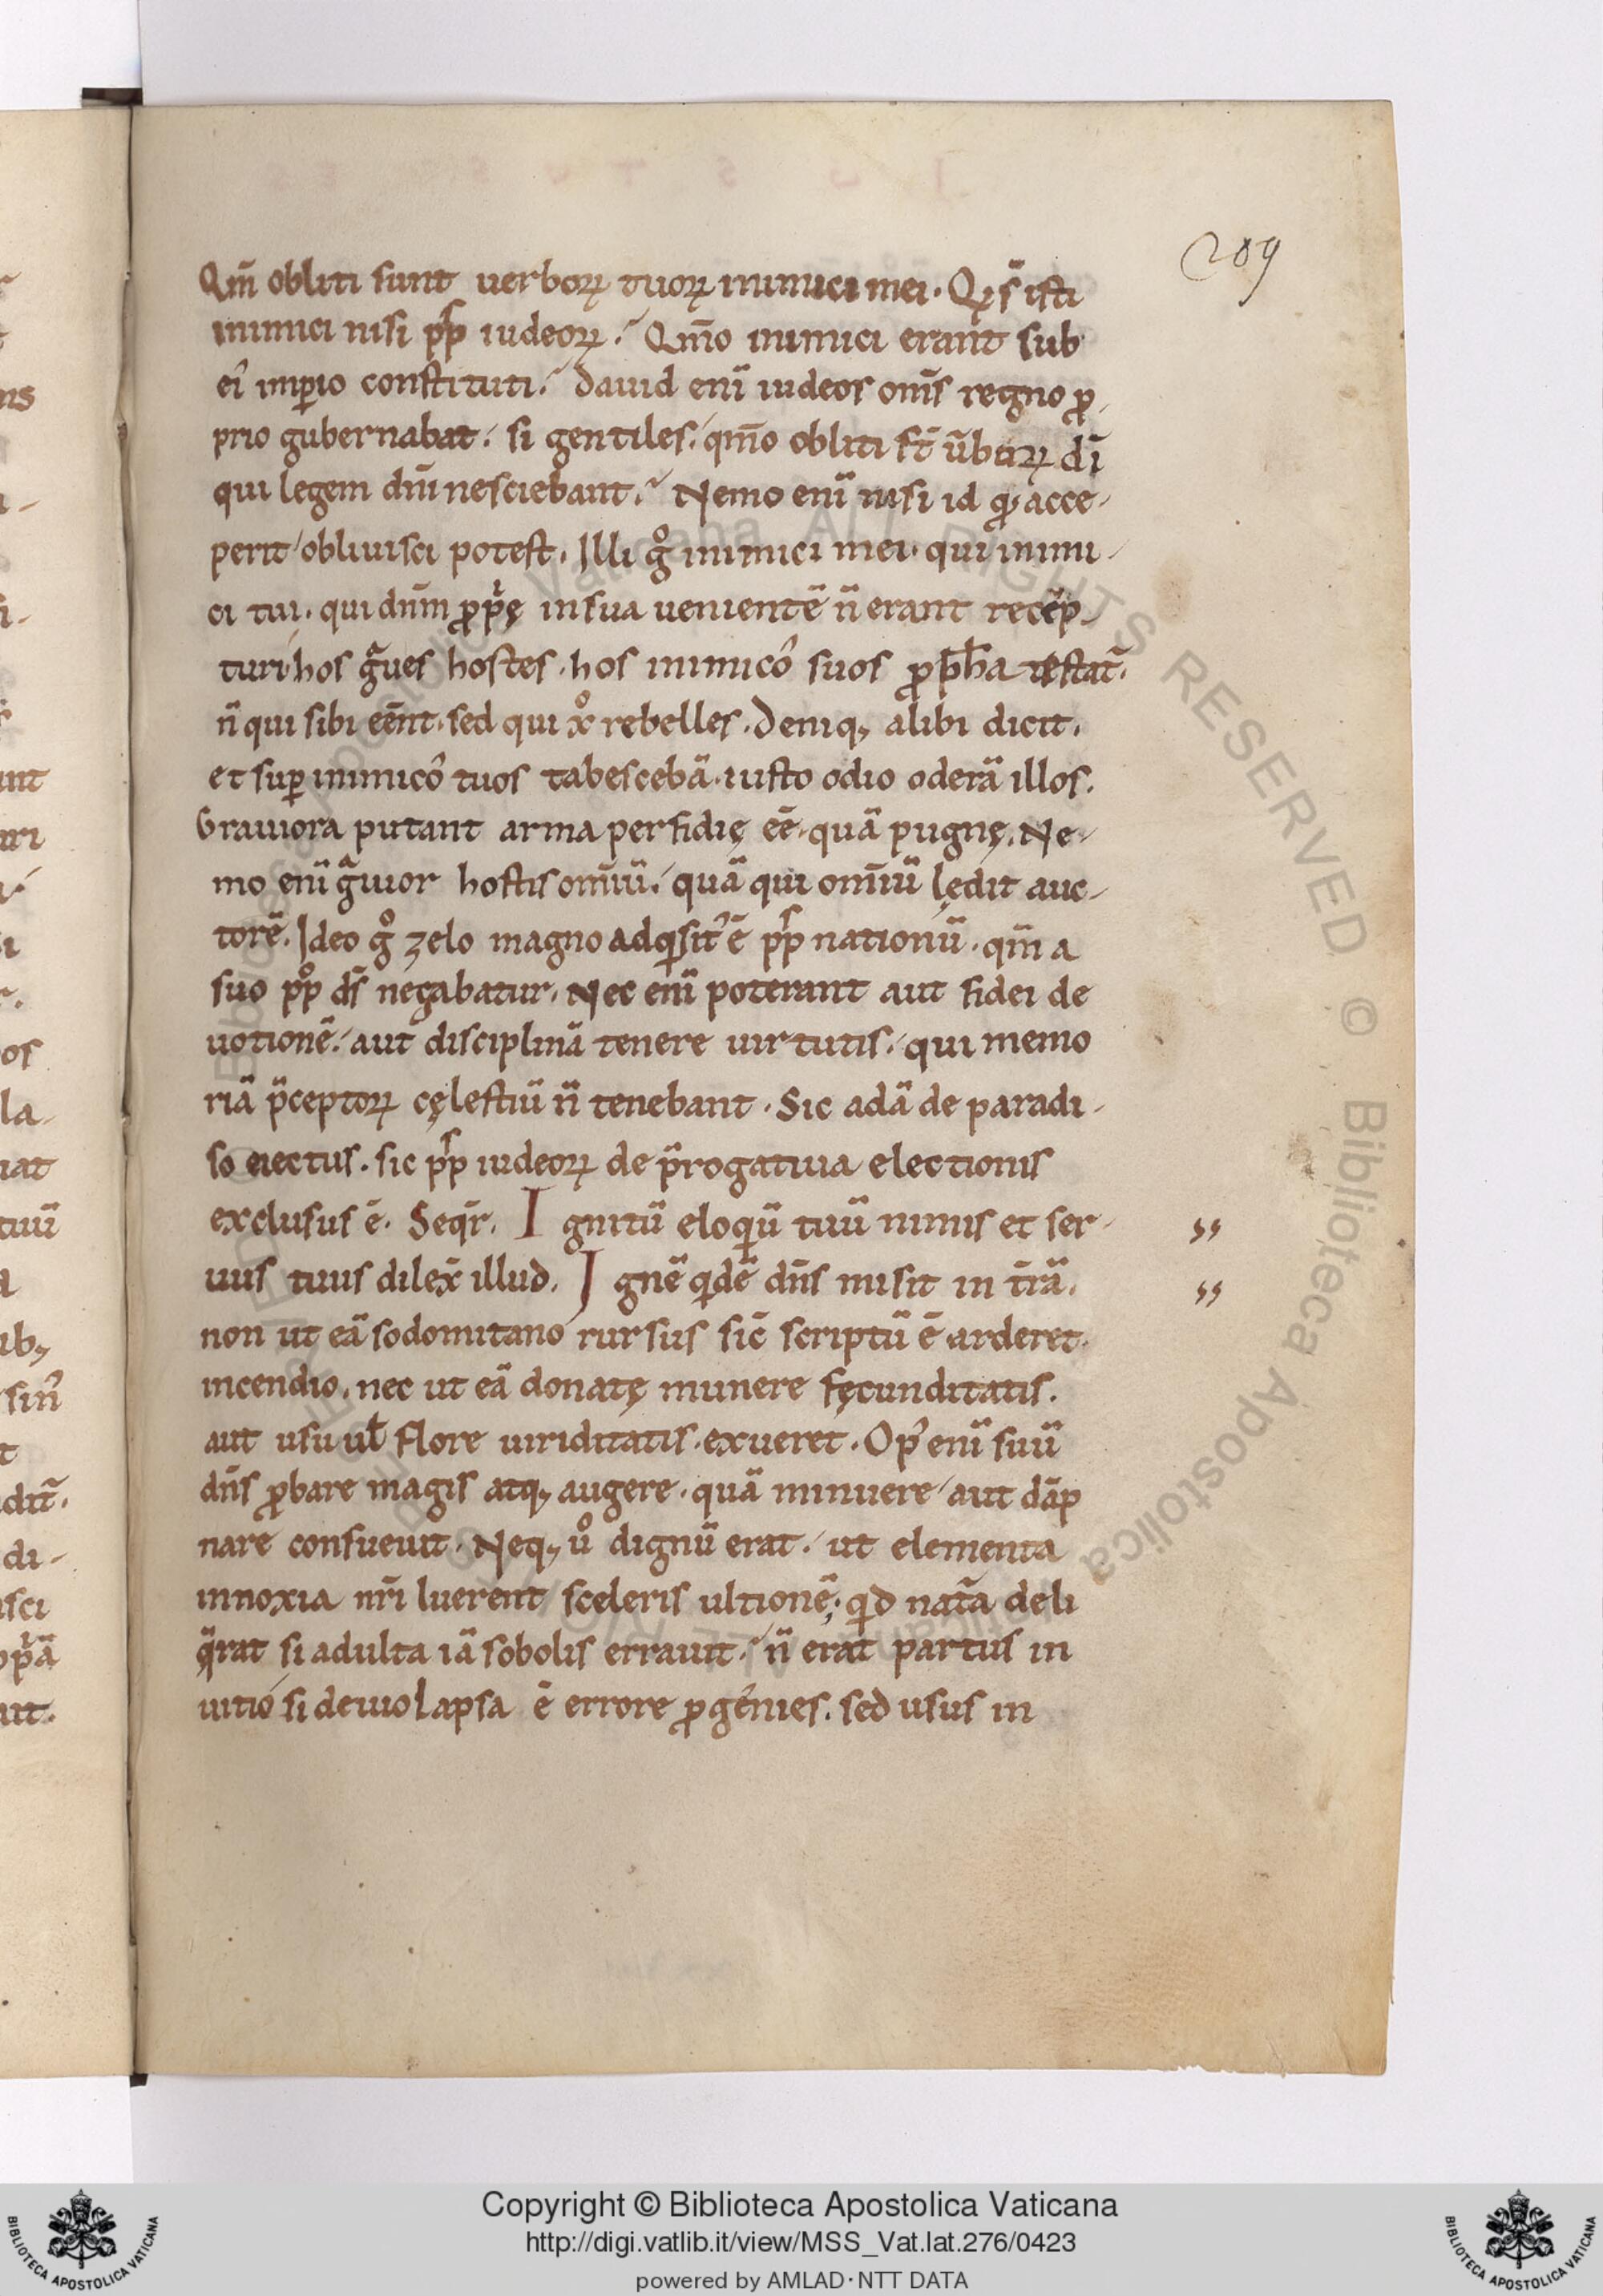 209
Qm̄ obliti sunt uerboꝝ tuoꝝ inimici mei. Qi s̄ isti
inimici nisi pp̄ls iudeoꝝ? Qm̄o inimici erant sub
ei' imꝑio constituti? Dauid enī iudeos om̄s regno ꝓ-
prio gubernabat. si gentiles. qm̄o obliti st̄ ūboꝝ dī
qui legem dn̄i nesciebant? Nemo enī nisi id qđ acce-
perit obliuisci potest. Illi gº inimici mei. qui inimi-
ci tui. qui dn̄m ꝓpⁱę in sua uenientē n̄ erant recep-
turi. hos gᵃues hostes. hos inimicos suos ꝓpħa testat̄.
n̄ qui sibi eēnt. sed qui xº rebelles. Deniq; alibi dicit.
et suꝑ inimicos tuos tabescebā. iusto odio oderā illos.
Grauiora putant arma perfidię eē. quā pugnę. Ne-
mo enī gᵃuior hostis om̄iū. quā qui om̄iū lędit auc-
torē. Ideo gº zelo magno adqⁱsit' ē pp̄ls nationū. qm̄ a
suo ppº ds̄ negabatur. Nec enī poterant aut fidei de
uotionē. aut disciplinā tenere uirtutis. qui memo
riā p̄ceptoꝝ cęlestiū n̄ tenebant. Sic adā de paradi-
so eiectus. sic pp̄ls iudeoꝝ de p̄rogatiua electionis
exclusus ē. Seqr̄. Ignitū eloqⁱū tuū nimis et ser-
uus tuus dilex̄ illud. Ignē qⁱdē dn̄s misit in t̄rā.
non ut eā sodomitano rursus sic̄ scriptū ē arderet
incendio. nec ut eā donatę munere fęcunditatis.
aut usu ul̄ flore uiriditatis exueret. Op' enī suū
dn̄s ꝓbare magis atq; augere. quā minuere aut dāp
nare consueuit. Neq; uº dignū erat. ut elementa
innoxia nr̄i luerent sceleris ultionē. qⁱd nat̄a deli
q̄rat si adulta iā sobolis errauit? n̄ erat partus in
uitio si deuio lapsa ē errore ꝓgenies. sed usus in
Copyright © Biblioteca Apostolica Vaticana
http://digi.vatlib.it/view/MSS_Vat.lat.276/0423
powered by AMLAD·NTT DATA